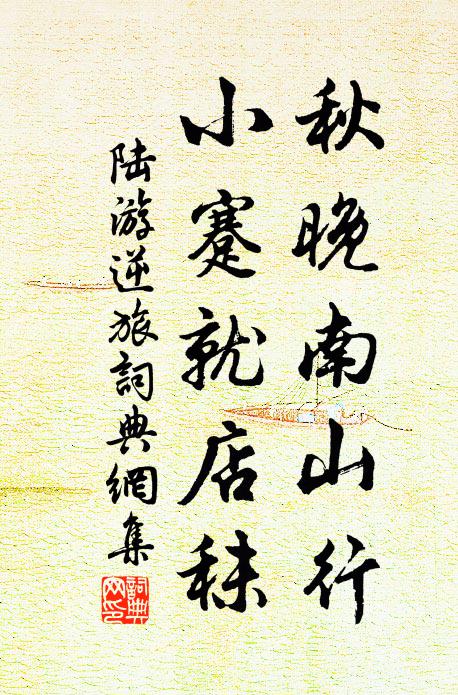 秋晚南山行
小蹇就店秣
陆游逆旅詞典網集
詞典
网印